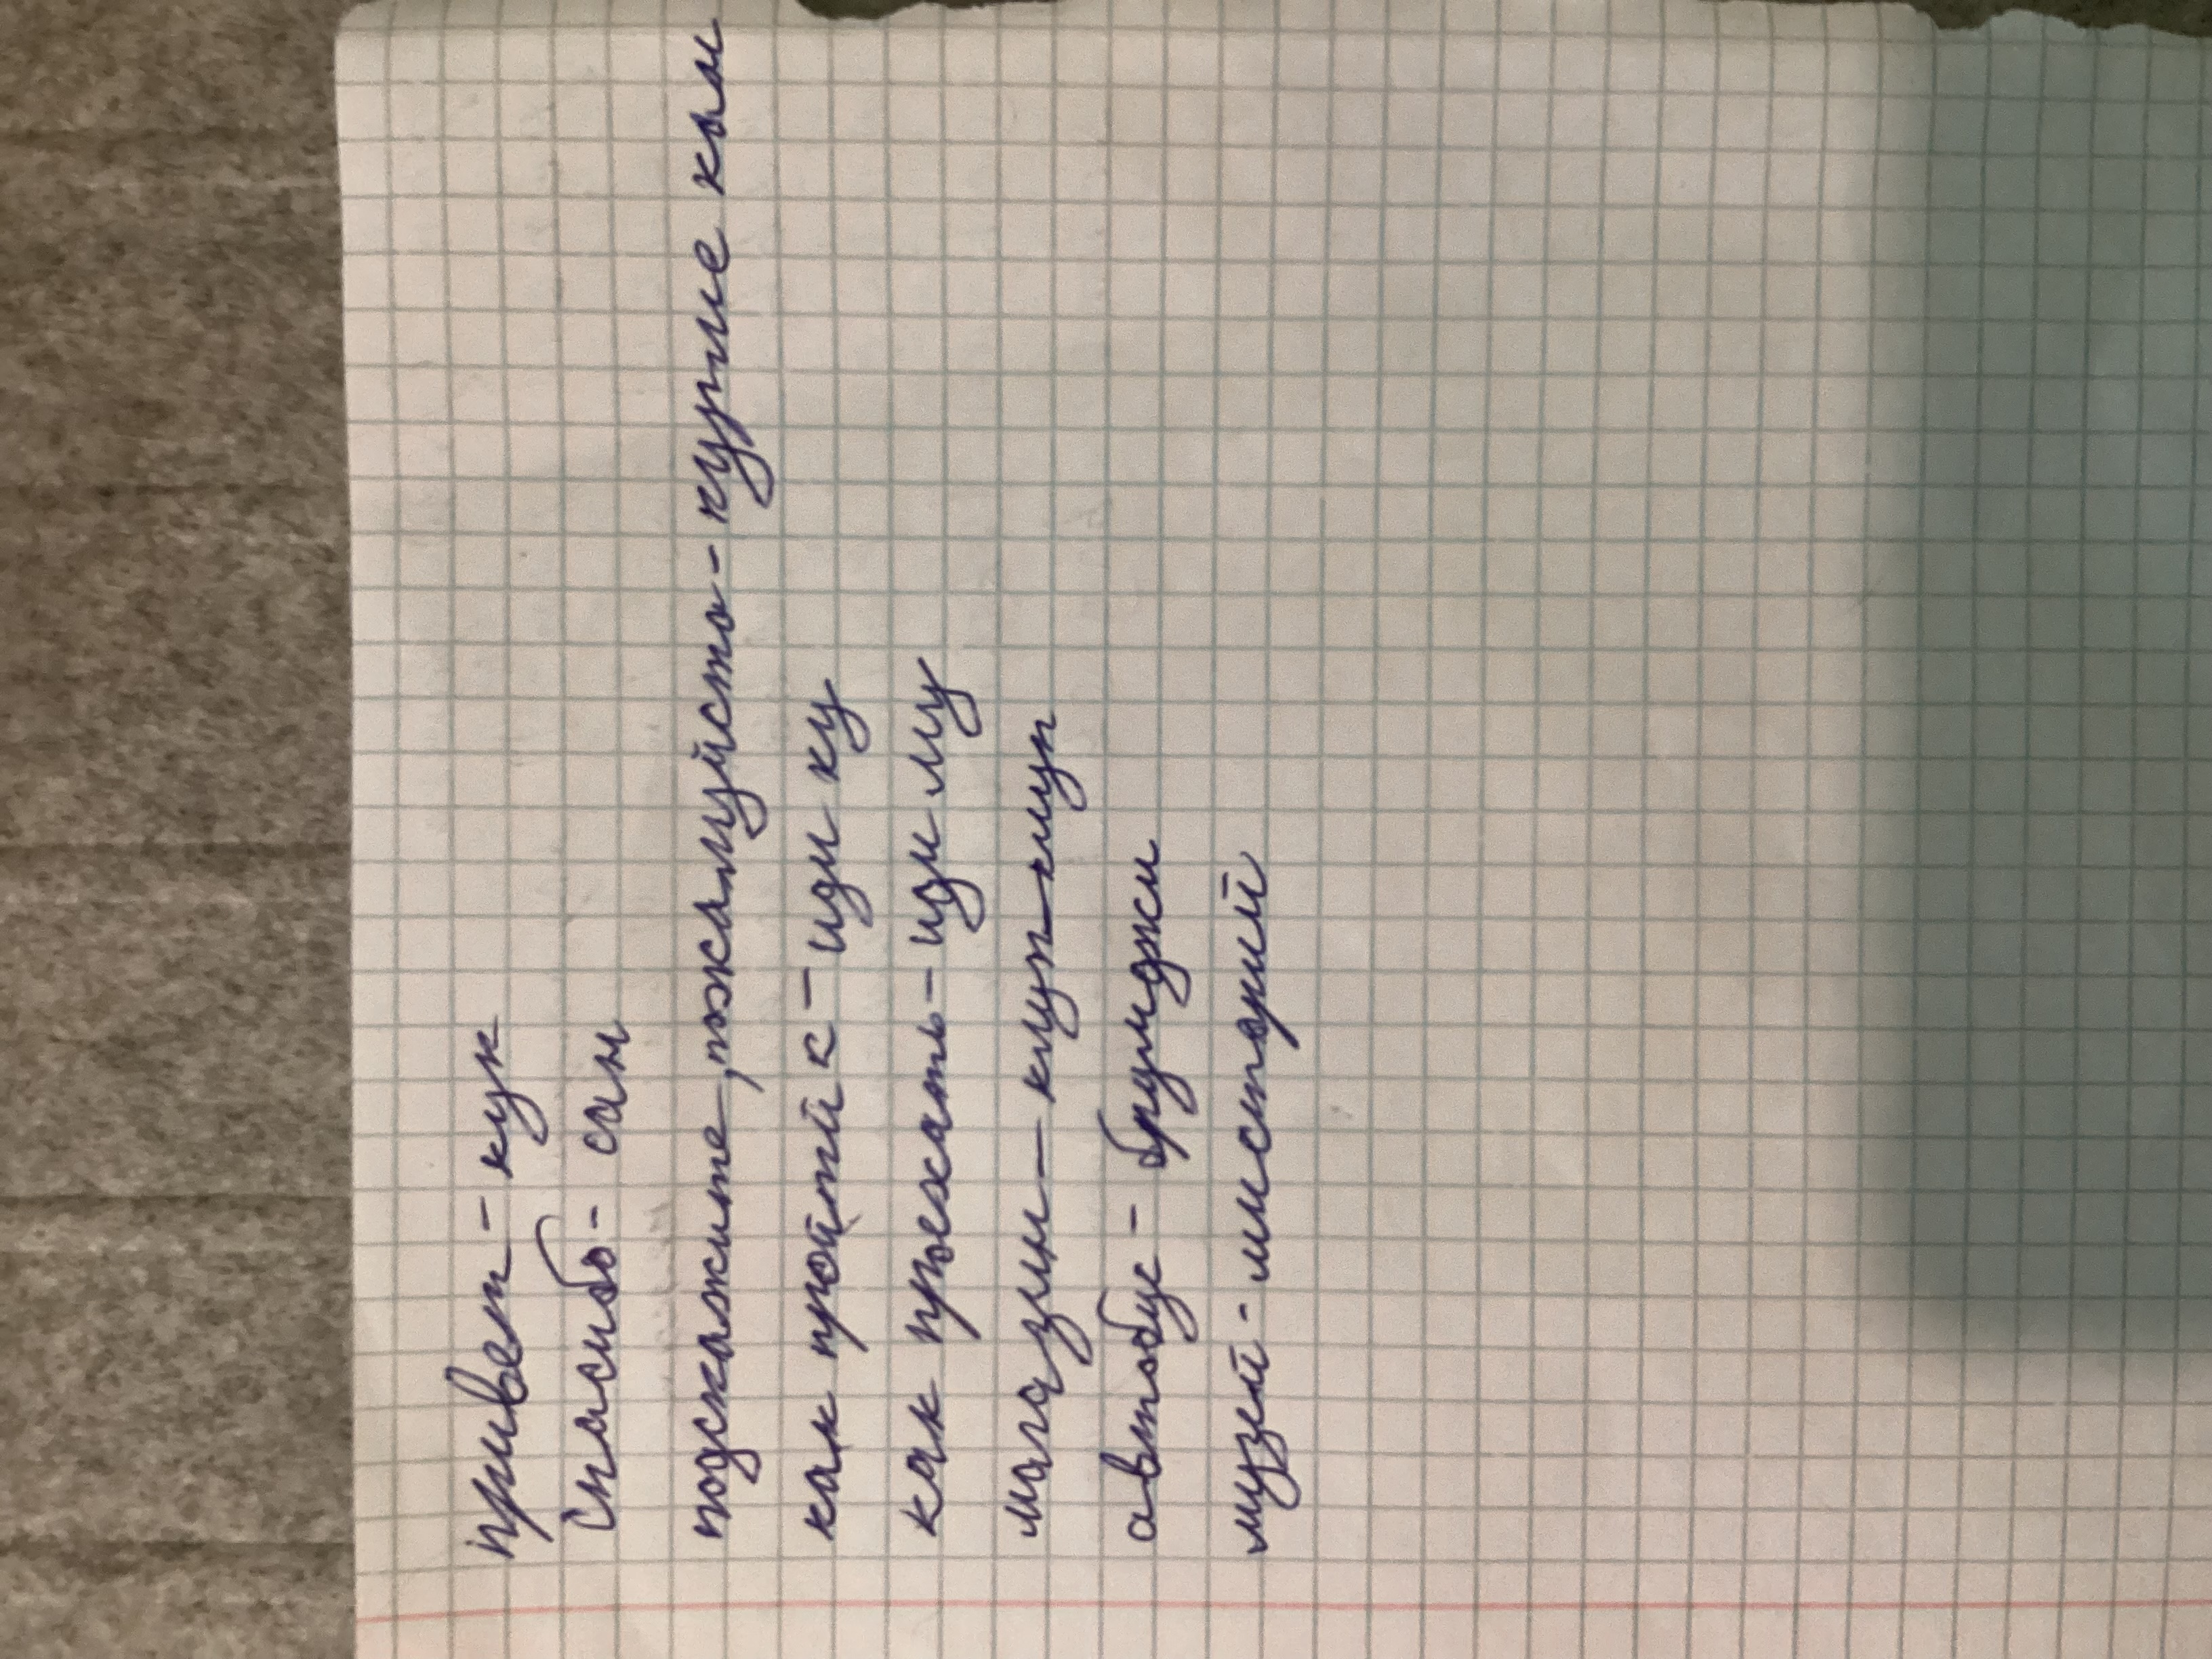 привет - кук
Спасибо - сан
подскажите, пожалуйста - курлие кам
как пройти к - иди ку
как проехать - иди му
магазин - клуп-шуп
автобус - брумджи
музей - мисторий